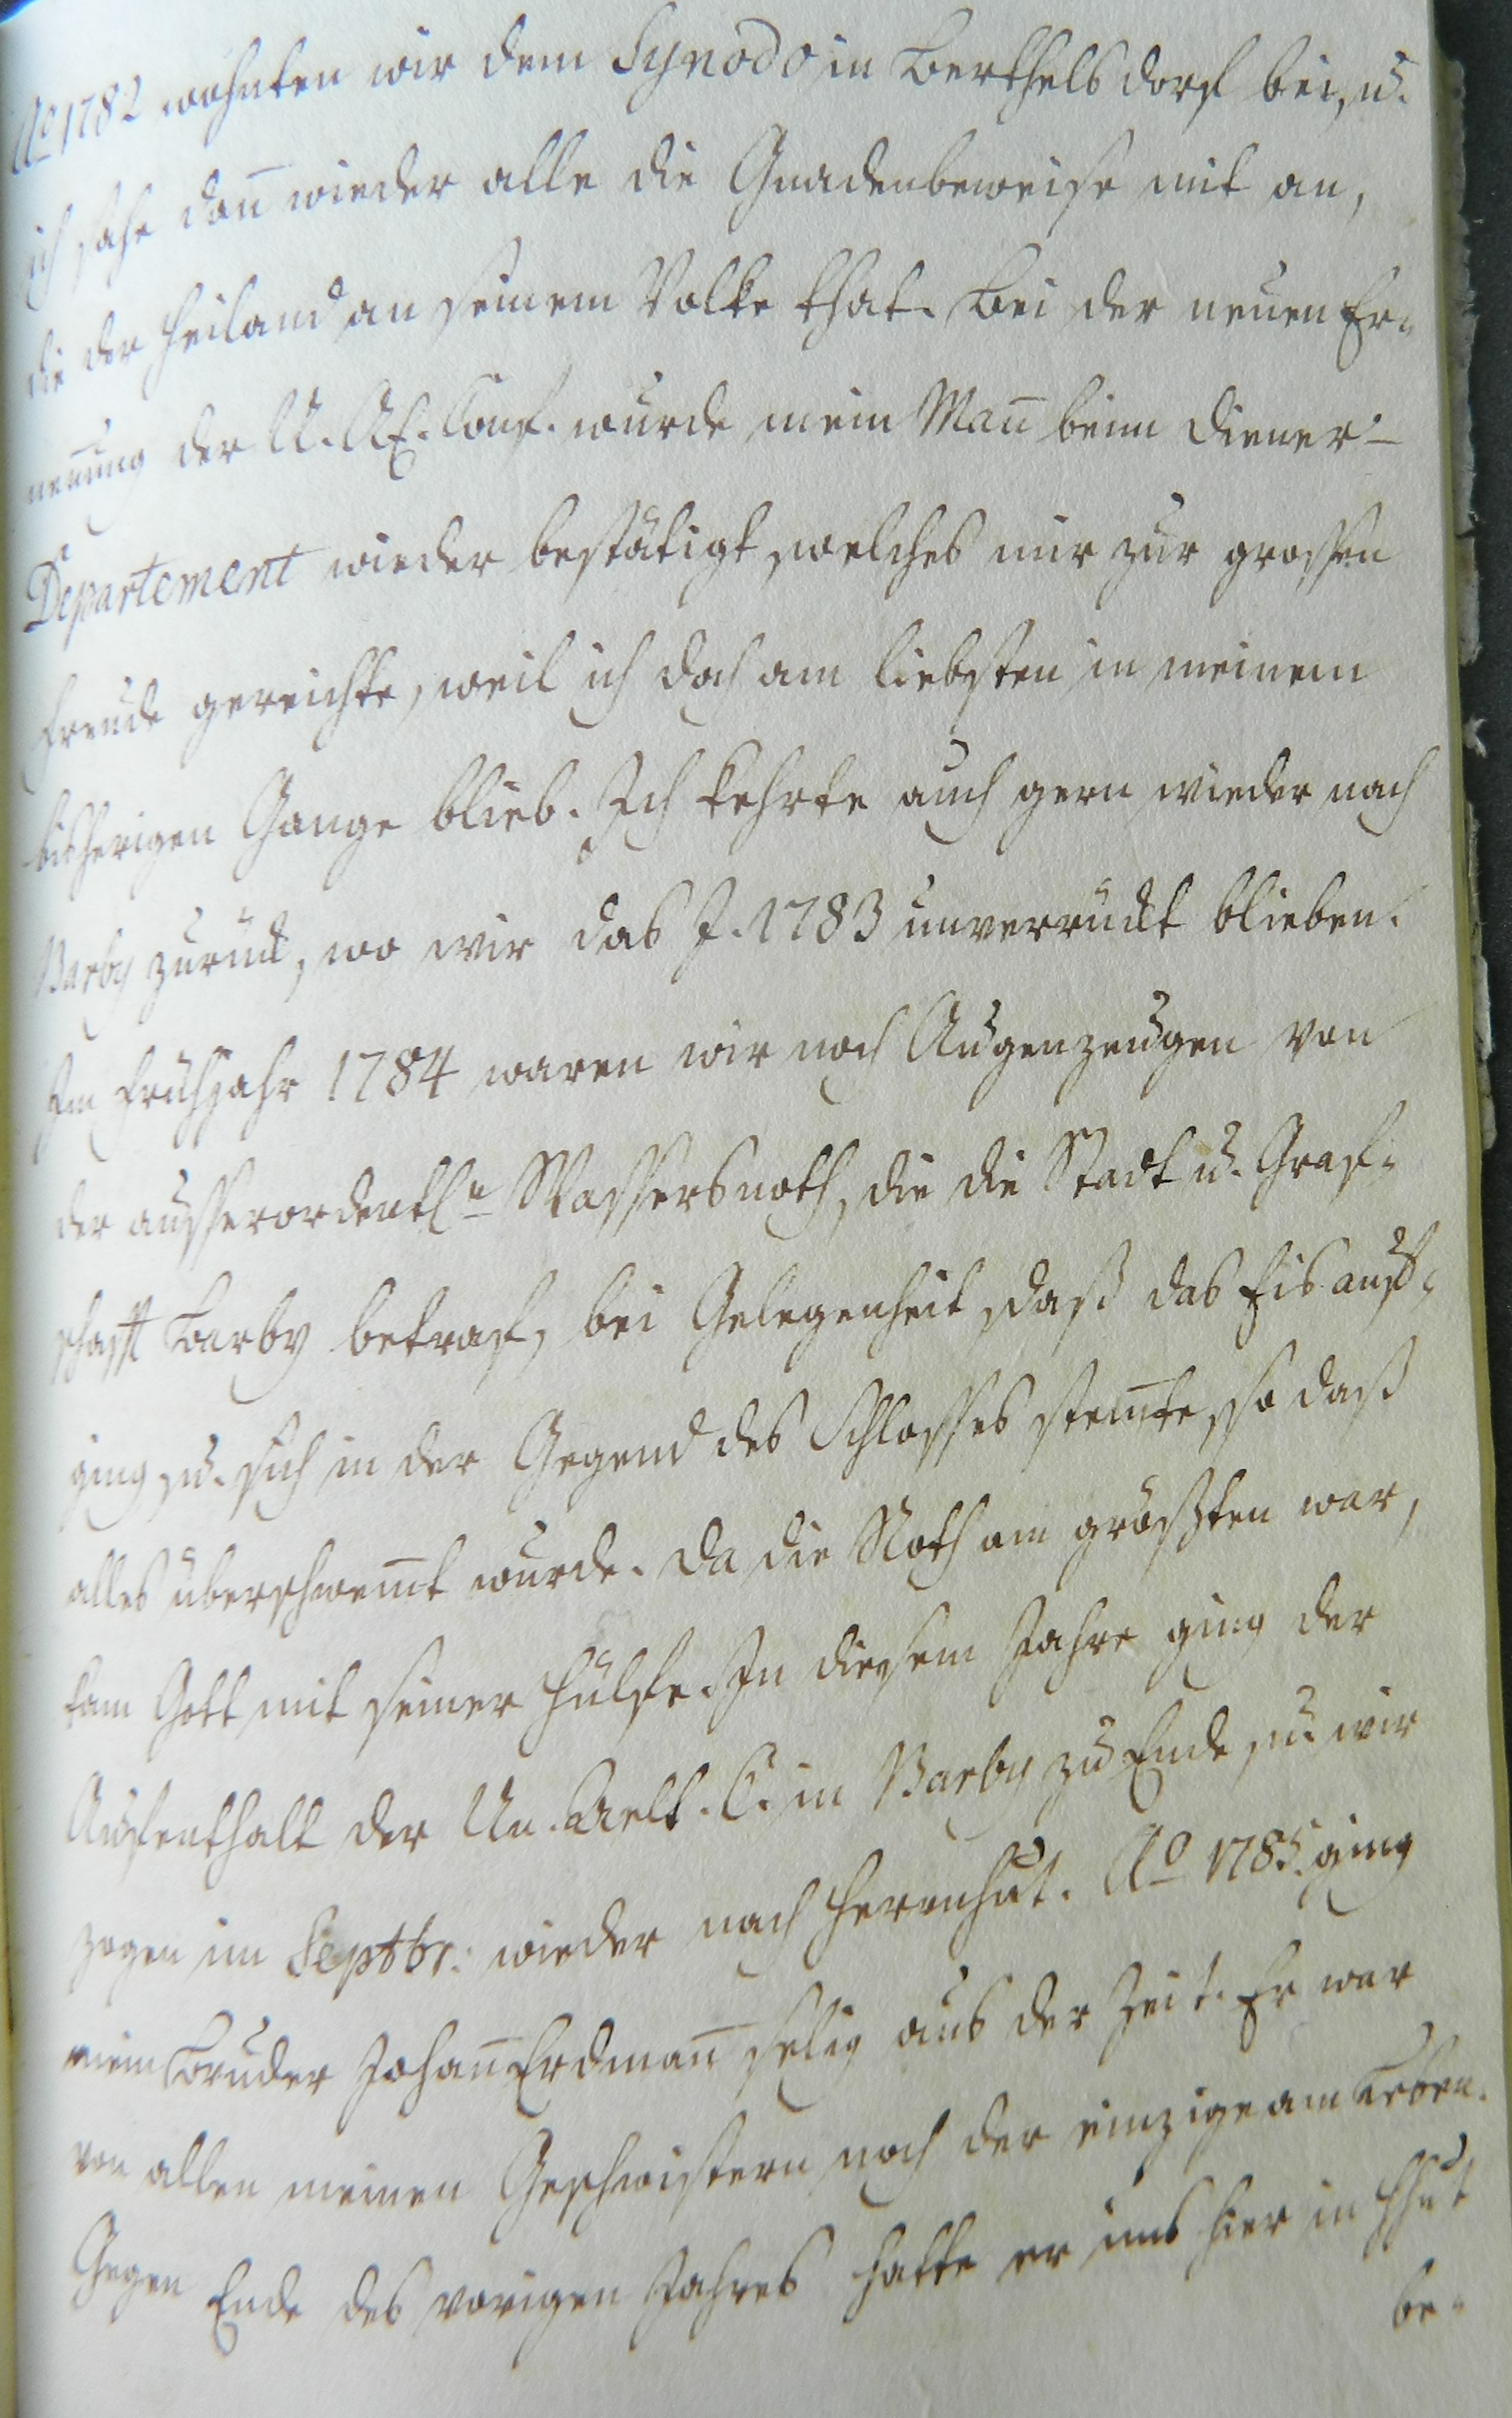 Ao 1782 wohnten wir dem Synodo in Berthelsdorf bei, u.
ich sahe dan̄ wieder alle die Gnadenbeweise mit an,
die der Heiland an seinem Volke that. Bei der neuen Er-
nen̄ung der U. AE. Conf. wurde mein Man̄ beim Diener-
Departement wieder bestätigt, welches mir zur grossen
Freude gereichte, weil ich doch am liebsten in meinem
bisherigen Gange blieb. Ich kehrte auch gern wieder nach
Barby zurück, wo wir das J. 1783 unverrückt blieben.
Im Frühjahr 1784 waren wir noch Augenzeugen von
der ausserordentln Wassersnoth, die die Stadt u. Graf-
schafft Barby betraf, bei Gelegenheit, daß das Eis auf-
ging, u. sich in der Gegend des Schlosses stem̄te, so daß
alles überschwem̄t wurde. Da die Noth am größten war,
kam Gott mit seiner Hülfe. In diesem Jahre ging der
Aufenthalt der Un. Aelt. C. in Barby zu Ende, u. wir
zogen im Septbr: wieder nach Herrnhut. Ao 1785. ging
mein Bruder Johan̄ Erdman̄ selig aus der Zeit. Er war
von allen meinen Geschwistern noch der einzige am Leben.
Gegen Ende des vorigen Jahres hatte er uns hier in Hhut
be-